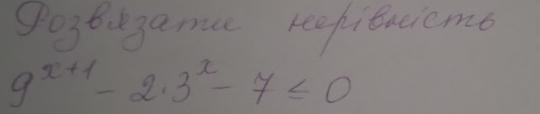 Розв'язати нерівність
9^{x+1} - 2·3^x - 7 ≤ 0